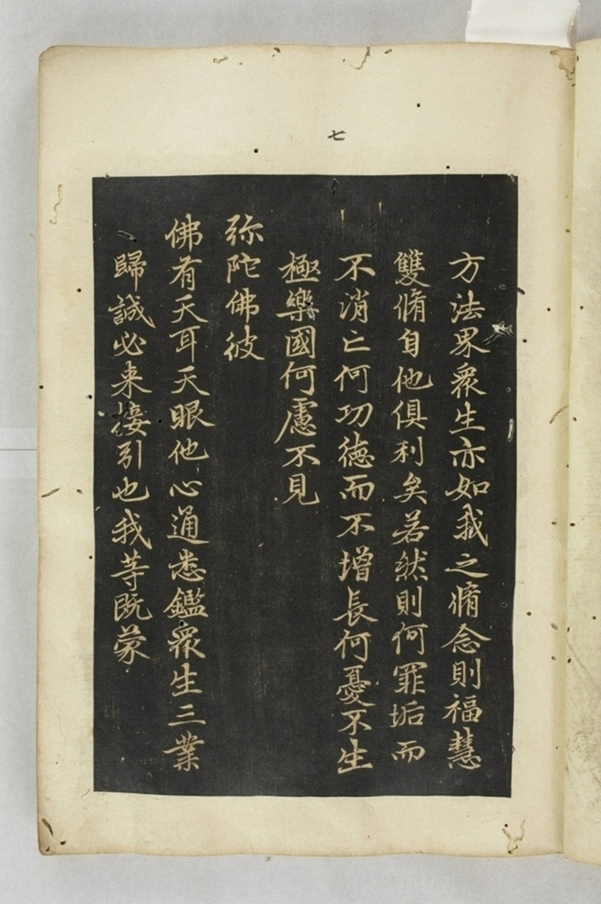 七
方法界衆生亦如我之脩念則福慧
雙脩自他俱利矣若然則何罪垢而
不消亡何功徳而不增長何憂不生
極樂國何慮不見
弥陀佛彼
佛有天耳天眼他心通悉鑑衆生三業
歸誠必来接引也我等既蒙